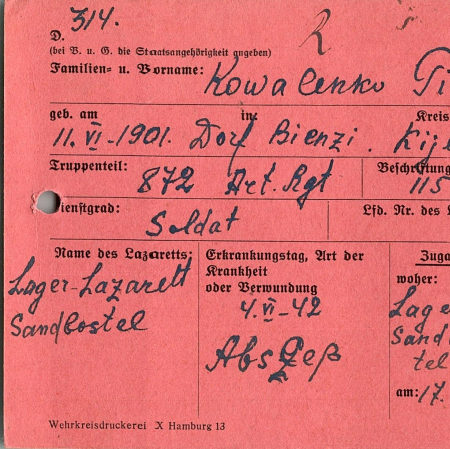 D. 314.
(bei B. u. G. die Staatsangehörigkeit angeben)
Familien- u. Vorname: Kowalenko Ti
geb. am in: Kreis
11. VI-1901. Dorf Bienzi. Kij
Truppenteil: 872 Art. Rgt Beschriftung
115
Dienstgrad: Soldat Lfd. Nr. des L
Name des Lazaretts:
Lager-Lazarett
Sandbostel
Erkrankungstag, Art der
Krankheit
oder Verwundung
4. VI-42
Abszeß
Zuga
woher:
Lage
Sand
tel
am: 17.
Wehrkreisdruckerei X Hamburg 13